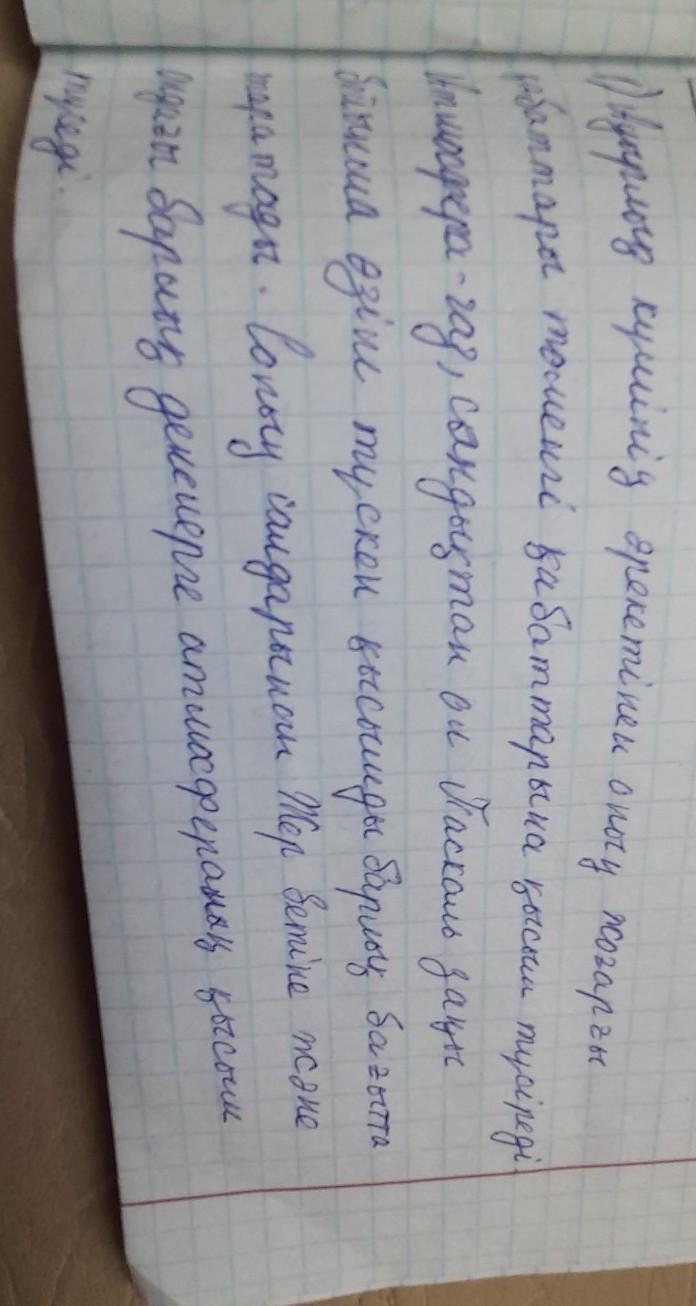 1) Ауырлық күшінің әрекетінен оның жоғарғы
қабаттары төменгі қабаттарына қысым түсіреді.
Атмосфера-газ, сондықтан ол Паскаль заңы
бойынша өзіне түскен қысымды барлық бағытта
таратады. Соның салдарынан Жер бетіне және
ондағы барлық денелерге атмосфераның қысым
түседі.